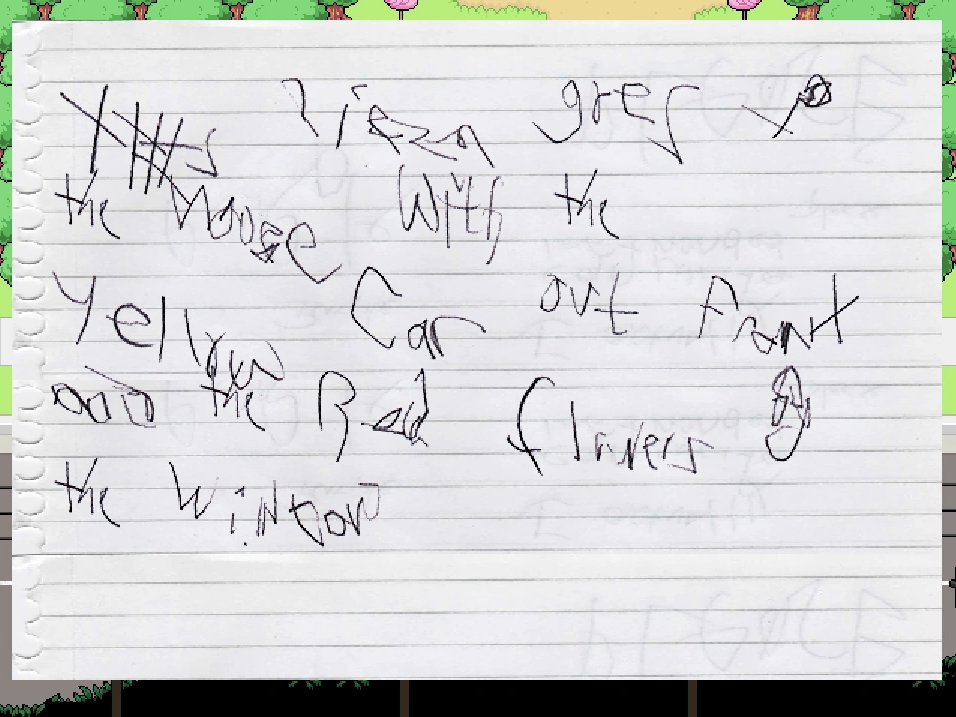 goes
the House With the
Yellow Car out front
and the Red flowers
the Window